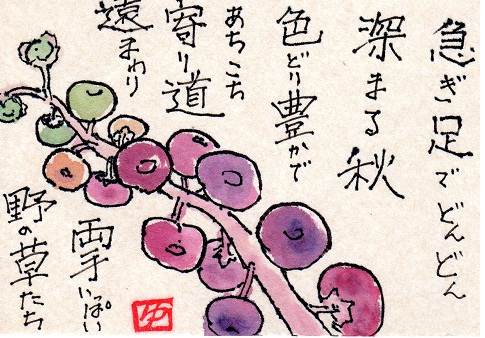 急ぎ足でどんどん
深まる秋
色どり豊かで
あちこち
寄り道
遠まわり
両手いっぱい
野の草たち